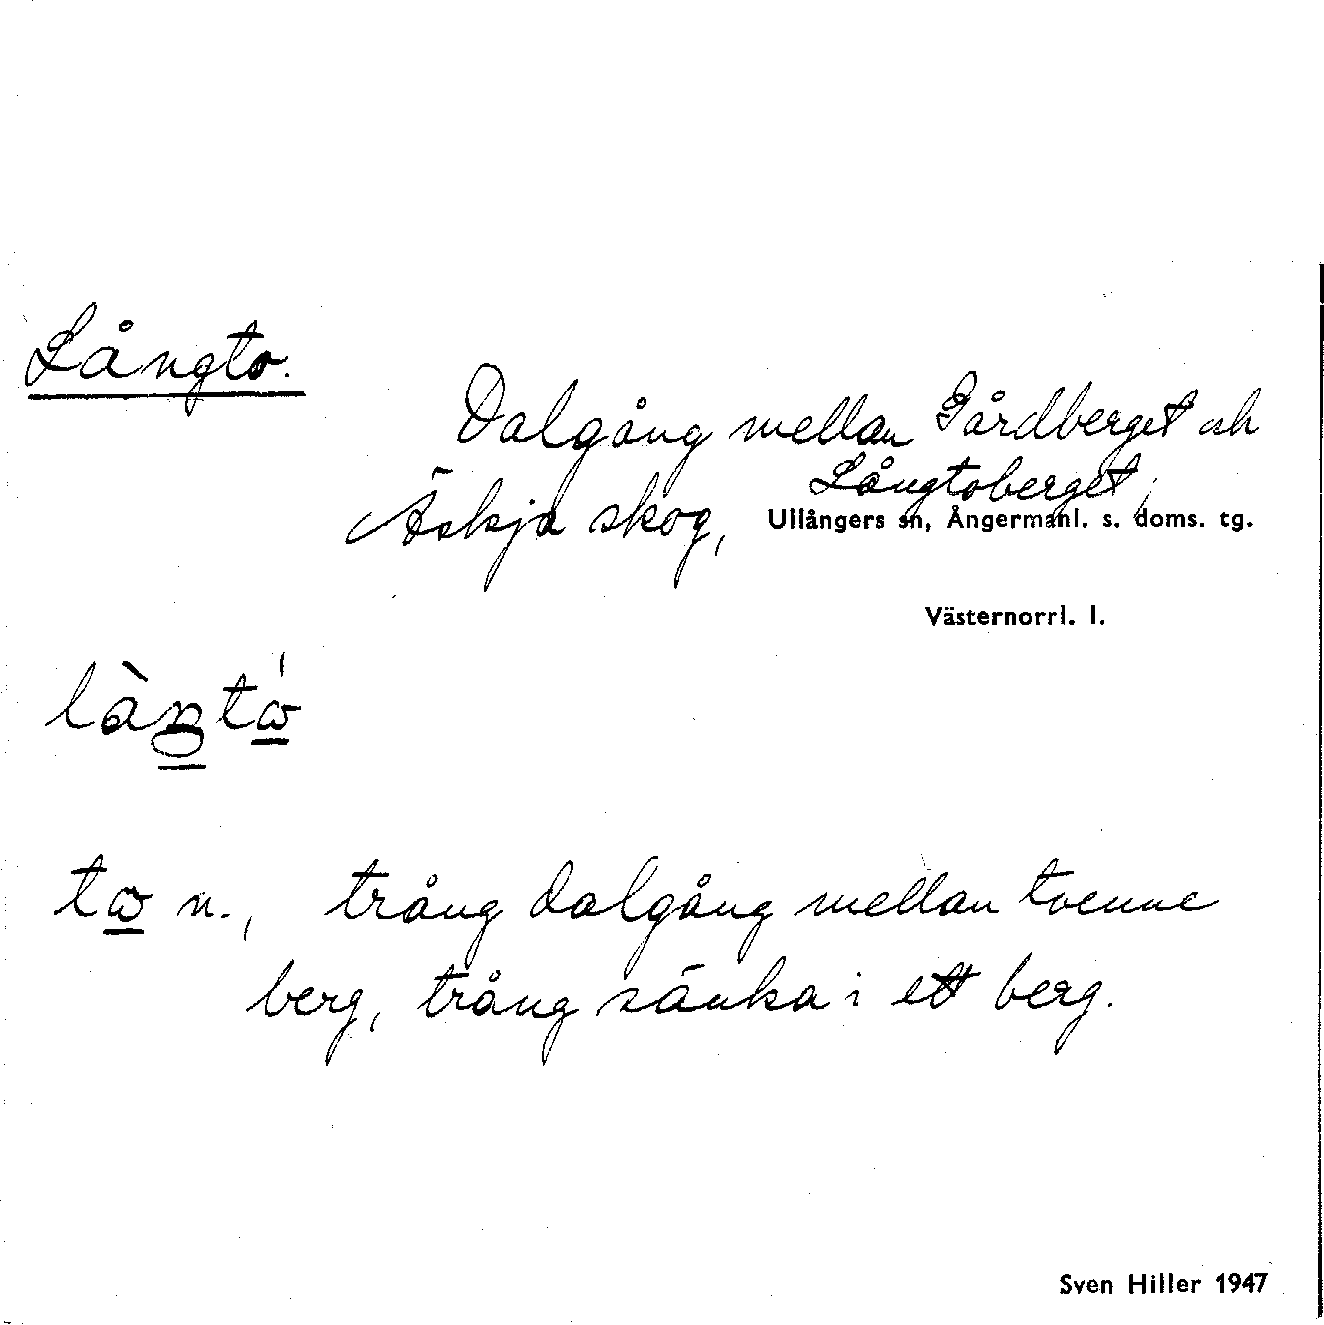 Långto.
Dalgång mellan Gårdberget och
Långtoberget,
Äskja skog,
Ullångers sn, Ångermanl. s. doms. tg.
Västernorrl. l.
to n., trång dalgång mellan tvenne
berg, trång sänka i ett berg.
Sven Hiller 1947